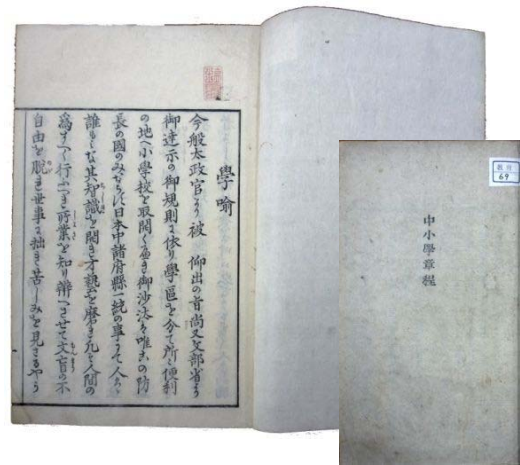 學喻
今般太政官より被 仰出の旨尚又文部省より
御達示の御規則に依り學區を分て所々便利
の地へ小學校を取開くべき御沙汰を唯志の防
長の國のみならす日本中諸府縣一統の事にて人々
誰もみな其知識を開き才藝を磨き凡そ人間の
為すべく行ふべき所業を知り辨へさせて文盲の不
自由を脱き世事に拙き苦しみを見さるやう
中小學章程
69